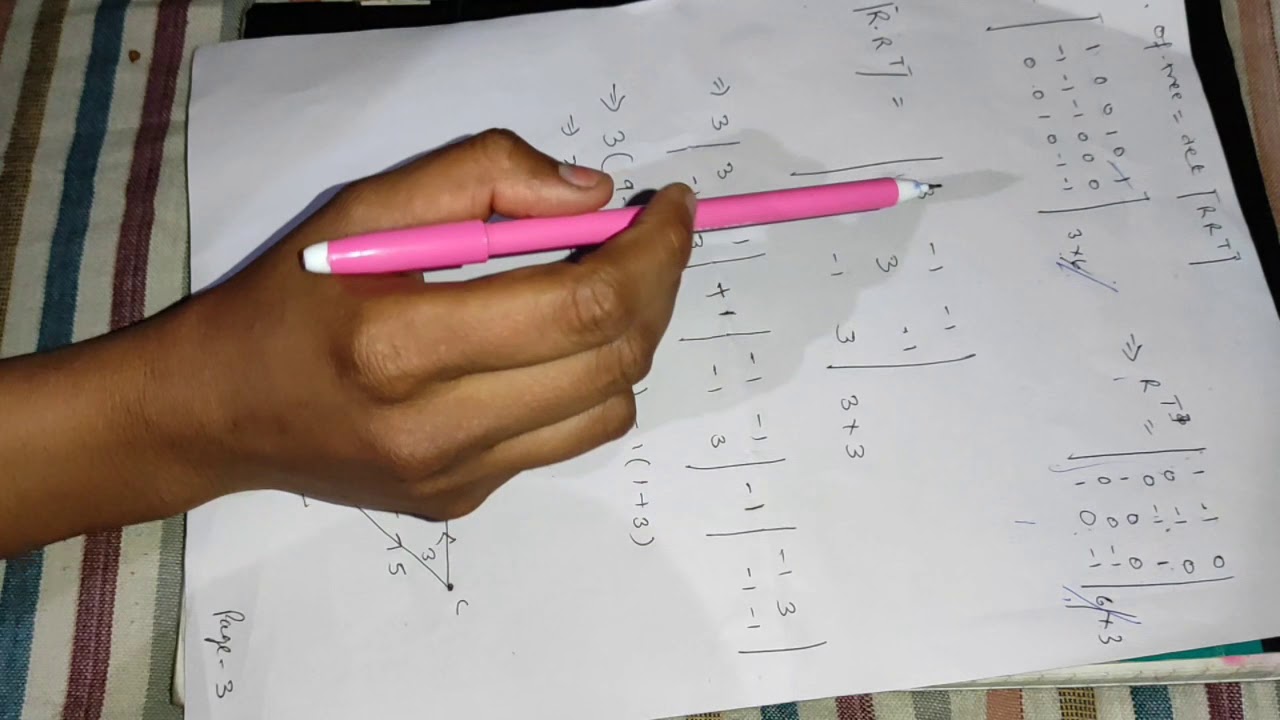 of tree = det [RRT]
1 0 0 1 0 1
-1 -1 -1 0 0 0
0 0 1 0 -1 -1
3×6
⇒ RT =
1 -1 0
0 -1 0
0 -1 1
1 0 0
0 0 -1
1 0 -1
6×3
[R.RT] =
3 -1 -1
3 -1
-1 3
3×3
⇒ 3 | 3 -1
3 | +1 | -1 -1
-1 3 | -1 | -1 3
-1 -1 |
⇒ 3(9
-1(1+3)
⇒
3
5
C
Page-3